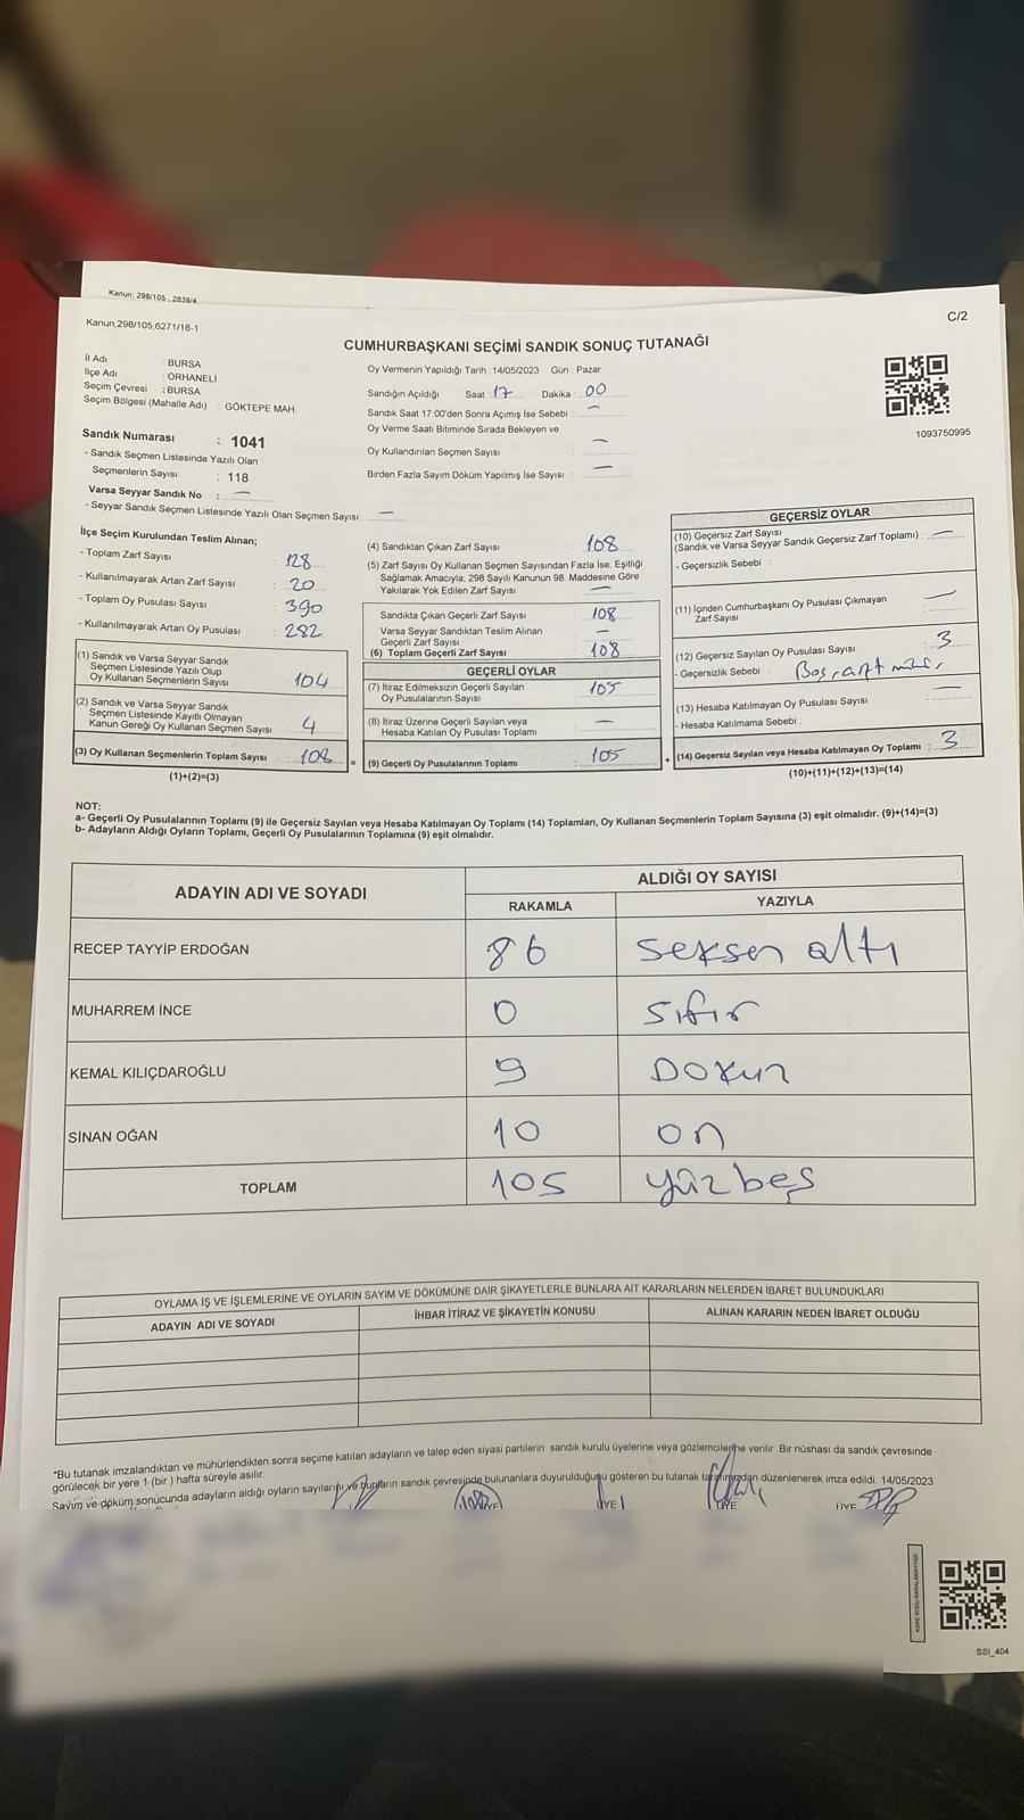 Kanun: 298/105 , 2839/4
Kanun,298/105;6271/18-1
C/2
CUMHURBAŞKANI SEÇİMİ SANDIK SONUÇ TUTANAĞI
İl Adı : BURSA
İlçe Adı : ORHANELİ
Seçim Çevresi : BURSA
Seçim Bölgesi (Mahalle Adı) : GÖKTEPE MAH.
Sandık Numarası : 1041
- Sandık Seçmen Listesinde Yazılı Olan
Seçmenlerin Sayısı : 118
Varsa Seyyar Sandık No : —
- Seyyar Sandık Seçmen Listesinde Yazılı Olan Seçmen Sayısı —
Oy Vermenin Yapıldığı Tarih : 14/05/2023 Gün : Pazar
Sandığın Açıldığı Saat : 17 Dakika : 00
Sandık Saat 17:00'den Sonra Açımış İse Sebebi : —
Oy Verme Saati Bitiminde Sırada Bekleyen ve
Oy Kullandırılan Seçmen Sayısı —
Birden Fazla Sayım Döküm Yapılmış İse Sayısı —
1093750995
İlçe Seçim Kurulundan Teslim Alınan;
- Toplam Zarf Sayısı : 128
- Kullanılmayarak Artan Zarf Sayısı : 20
- Toplam Oy Pusulası Sayısı : 390
- Kullanılmayarak Artan Oy Pusulası : 282
(1) Sandık ve Varsa Seyyar Sandık
Seçmen Listesinde Yazılı Olup
Oy Kullanan Seçmenlerin Sayısı 104
(2) Sandık ve Varsa Seyyar Sandık
Seçmen Listesinde Kayıtlı Olmayan
Kanun Gereği Oy Kullanan Seçmen Sayısı 4
(3) Oy Kullanan Seçmenlerin Toplam Sayısı 108
(1)+(2)=(3)
(4) Sandıktan Çıkan Zarf Sayısı 108
(5) Zarf Sayısı Oy Kullanan Seçmen Sayısından Fazla İse, Eşitliği
Sağlamak Amacıyla, 298 Sayılı Kanunun 98. Maddesine Göre
Yakılarak Yok Edilen Zarf Sayısı —
Sandıkta Çıkan Geçerli Zarf Sayısı 108
Varsa Seyyar Sandıktan Teslim Alınan
Geçerli Zarf Sayısı —
(6) Toplam Geçerli Zarf Sayısı 108
GEÇERLİ OYLAR
(7) İtiraz Edilmeksizin Geçerli Sayılan
Oy Pusulalarının Sayısı 105
(8) İtiraz Üzerine Geçerli Sayılan veya
Hesaba Katılan Oy Pusulası Toplamı —
= (9) Geçerli Oy Pusulalarının Toplamı 105
GEÇERSİZ OYLAR
(10) Geçersiz Zarf Sayısı
(Sandık ve Varsa Seyyar Sandık Geçersiz Zarf Toplamı) —
- Geçersizlik Sebebi :
(11) İçinden Cumhurbaşkanı Oy Pusulası Çıkmayan
Zarf Sayısı —
(12) Geçersiz Sayılan Oy Pusulası Sayısı 3
- Geçersizlik Sebebi : Boş,
(13) Hesaba Katılmayan Oy Pusulası Sayısı —
- Hesaba Katılmama Sebebi :
+ (14) Geçersiz Sayılan veya Hesaba Katılmayan Oy Toplamı : 3
(10)+(11)+(12)+(13)=(14)
NOT:
a- Geçerli Oy Pusulalarının Toplamı (9) ile Geçersiz Sayılan veya Hesaba Katılmayan Oy Toplamı (14) Toplamları, Oy Kullanan Seçmenlerin Toplam Sayısına (3) eşit olmalıdır. (9)+(14)=(3)
b- Adayların Aldığı Oyların Toplamı, Geçerli Oy Pusulalarının Toplamına (9) eşit olmalıdır.
ADAYIN ADI VE SOYADI
ALDIĞI OY SAYISI
RAKAMLA YAZIYLA
RECEP TAYYİP ERDOĞAN 86 seksen altı
MUHARREM İNCE 0 sıfır
KEMAL KILIÇDAROĞLU 9 Dokuz
SİNAN OĞAN 10 on
TOPLAM 105 yüzbeş
OYLAMA İŞ VE İŞLEMLERİNE VE OYLARIN SAYIM VE DÖKÜMÜNE DAİR ŞİKAYETLERLE BUNLARA AİT KARARLARIN NELERDEN İBARET BULUNDUKLARI
ADAYIN ADI VE SOYADI İHBAR İTİRAZ VE ŞİKAYETİN KONUSU ALINAN KARARIN NEDEN İBARET OLDUĞU
*Bu tutanak imzalandıktan ve mühürlendikten sonra seçime katılan adayların ve talep eden siyasi partilerin sandık kurulu üyelerine veya gözlemcilerine verilir. Bir nüshası da sandık çevresinde
görülecek bir yere 1 (bir) hafta süreyle asılır.
Sayım ve döküm sonucunda adayların aldığı oyların sayılarını ve bunların sandık çevresinde bulunanlara duyurulduğunu gösteren bu tutanak tarafımızdan düzenlenerek imza edildi. 14/05/2023
ÜYE ÜYE ÜYE
SSI_404